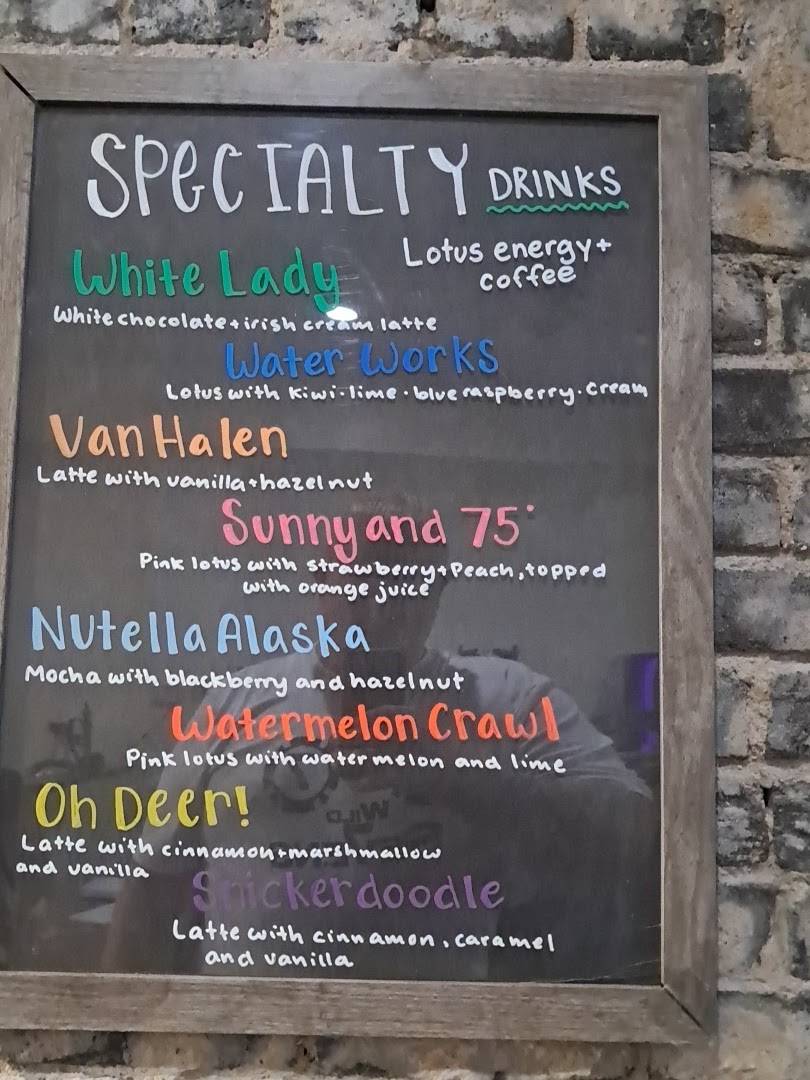 SPECIALTY DRINKS
Lotus energy+
coffee
White Lady
White chocolate + irish cream latte
Water Works
Lotus with kiwi · lime · blue raspberry · cream
Van Halen
Latte with vanilla + hazelnut
Sunny and 75°
Pink lotus with strawberry + Peach, topped
with orange juice
Nutella Alaska
Mocha with blackberry and hazelnut
Watermelon Crawl
Pink lotus with watermelon and lime
Oh Deer!
Latte with cinnamon + marshmallow
and vanilla
Snickerdoodle
Latte with cinnamon, caramel
and vanilla